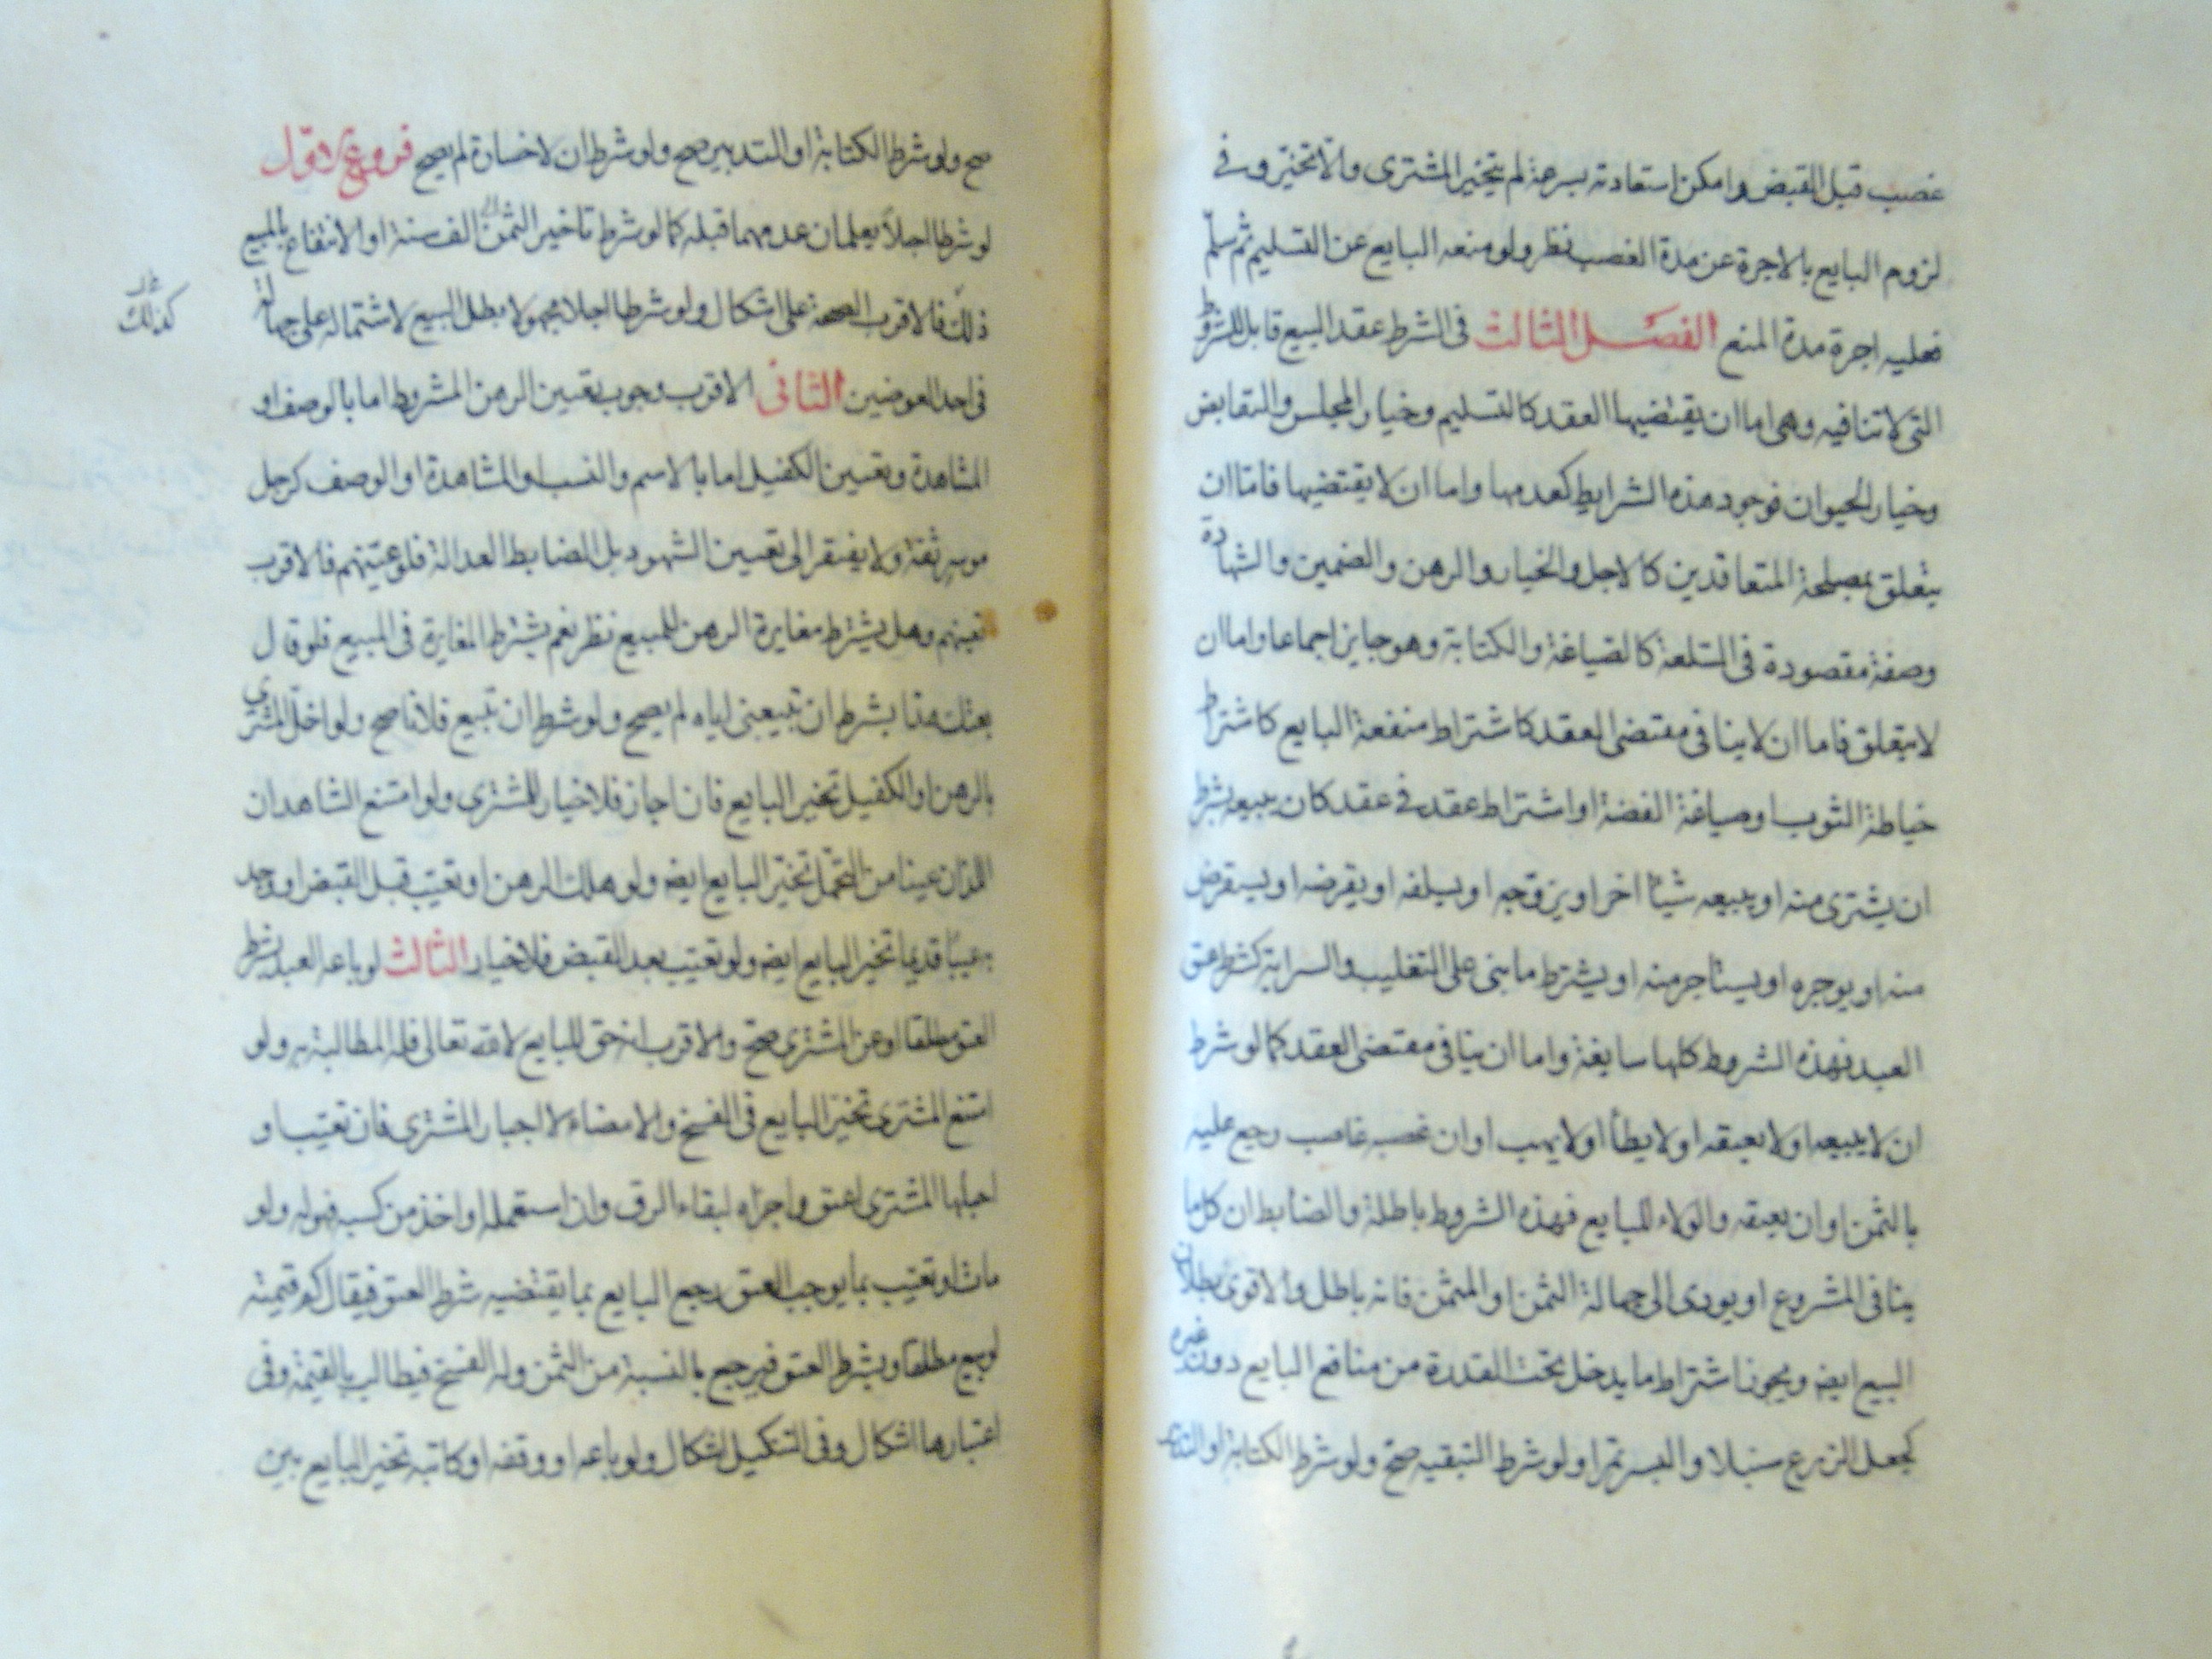 غصب قبل القبض وامكن استعادته بسرعة لم يتخير المشترى والا تخير وفى
لزوم البايع بالاجرة عن مدة الغصب نظر ولو منعه البايع عن التسليم ثم سلم
فعليه اجرة مدة المنع الفصل الثالث فى الشرط عقد البيع قابل للشروط
التى لا تنافيه وهى اما ان يقتضيها العقد كالتسليم وخيار المجلس والتقابض
وخيار الحيوان فوجود هذه الشرايط كعدمها واما ان لا يقتضيها فاما ان
يتعلق بمصلحة المتعاقدين كالاجل والخيار والرهن والضمين والشهادة
وصفة مقصودة فى السلعة كالصياغة والكتابة وهو جايز اجماعا واما ان
لا يتعلق فاما ان لا ينافى مقتضى العقد كاشتراط منفعة البايع كاشتراط
خياطة الثوب او صياغة الفضة او اشتراط عقد فى عقد كان يبيعه بشرط
ان يشترى منه او يبيعه شيئا اخر او يزوجه او يسلفه او يقرضه او يستقرض
منه او يوجره او يستاجر منه او يشترط ما بنى على التغليب والسراية كشرط عتق
العبد فهذه الشروط كلها سايغة واما ان ينافى مقتضى العقد كما لو شرط
ان لا يبيعه او لا يعتقه او لا يطأ او لا يهب او ان غصبه غاصب رجع عليه
بالثمن او ان يعتقه والولاء للبايع فهذه الشروط باطلة والضابط ان كل ما
ينافى المشروع او يودى الى جهالة الثمن او المثمن فانه باطل والاقوى بطلان
البيع ايضه ويجوز اشتراط ما يدخل تحت القدرة من منافع البايع دون غيره
كجعل الزرع سنبلا والبسر تمرا ولو شرط التبقيه صح ولو شرط الكتابة او التدبير
صح ولو شرط الكتابة او التدبير صح ولو شرط ان لا خسارة لم يصح فروع الاول
لو شرطا اجلا يعلمان عدمهما قبله كما لو شرط تاخير الثمن الى الف سنة او الانتفاع بالمبيع
ذلك فالاقرب الصحة على اشكال ولو شرطا اجلا مجهولا بطل البيع لاشتماله على جهالة
كذلك
فى احد العوضين الثانى الاقرب وجوب تعيين الرهن المشروط اما بالوصف او
المشاهدة وتعيين الكفيل اما بالاسم والنسب او المشاهدة او الوصف كرجل
موسر ثقة ولا يفتقر الى تعيين الشهود بل الضابط العدالة فلو عينهم فالاقرب
تعينهم وهل يشترط مغايرة الرهن للمبيع نظر نعم يشترط المغايرة فى المبيع فلو قال
بعتك هذا بشرط ان تبيعنى اياه لم يصح ولو شرط ان تبيع فلانا صح ولو اخل المشترى
بالرهن او الكفيل تخير البايع فان اجاز فلا خيار للمشترى ولو امتنع الشاهدان
اللذان عينا من التحمل تخير البايع ايضه ولو هلك الرهن او تعيب قبل القبض او وجد
به عيبا قديما تخير البايع ايضه ولو تعيب بعد القبض فلا خيار الثالث لو باعه العبد بشرط
العتق مطلقا او عن المشترى صح والاقرب انه حق للبايع لا لله تعالى فله المطالبة به ولو
امتنع المشترى تخير البايع فى الفسخ والامضاء لا اجبار المشترى فان تعيب او
احبلها المشترى اعتق واجزاه لبقاء الرق وان استعمله او اخذ من كسبه فهو له ولو
مات او تعيب بما يوجب العتق رجع البايع بما يقتضيه شرط العتق فيقال كم قيمته
لو بيع مطلقا وبشرط العتق فيرجع بالنسبة من الثمن وله الفسخ فيطالب بالقيمة وفى
اعتبارها اشكال وفى التنكيل اشكال ولو باعه او وقفه او كاتبه تخير البايع بين